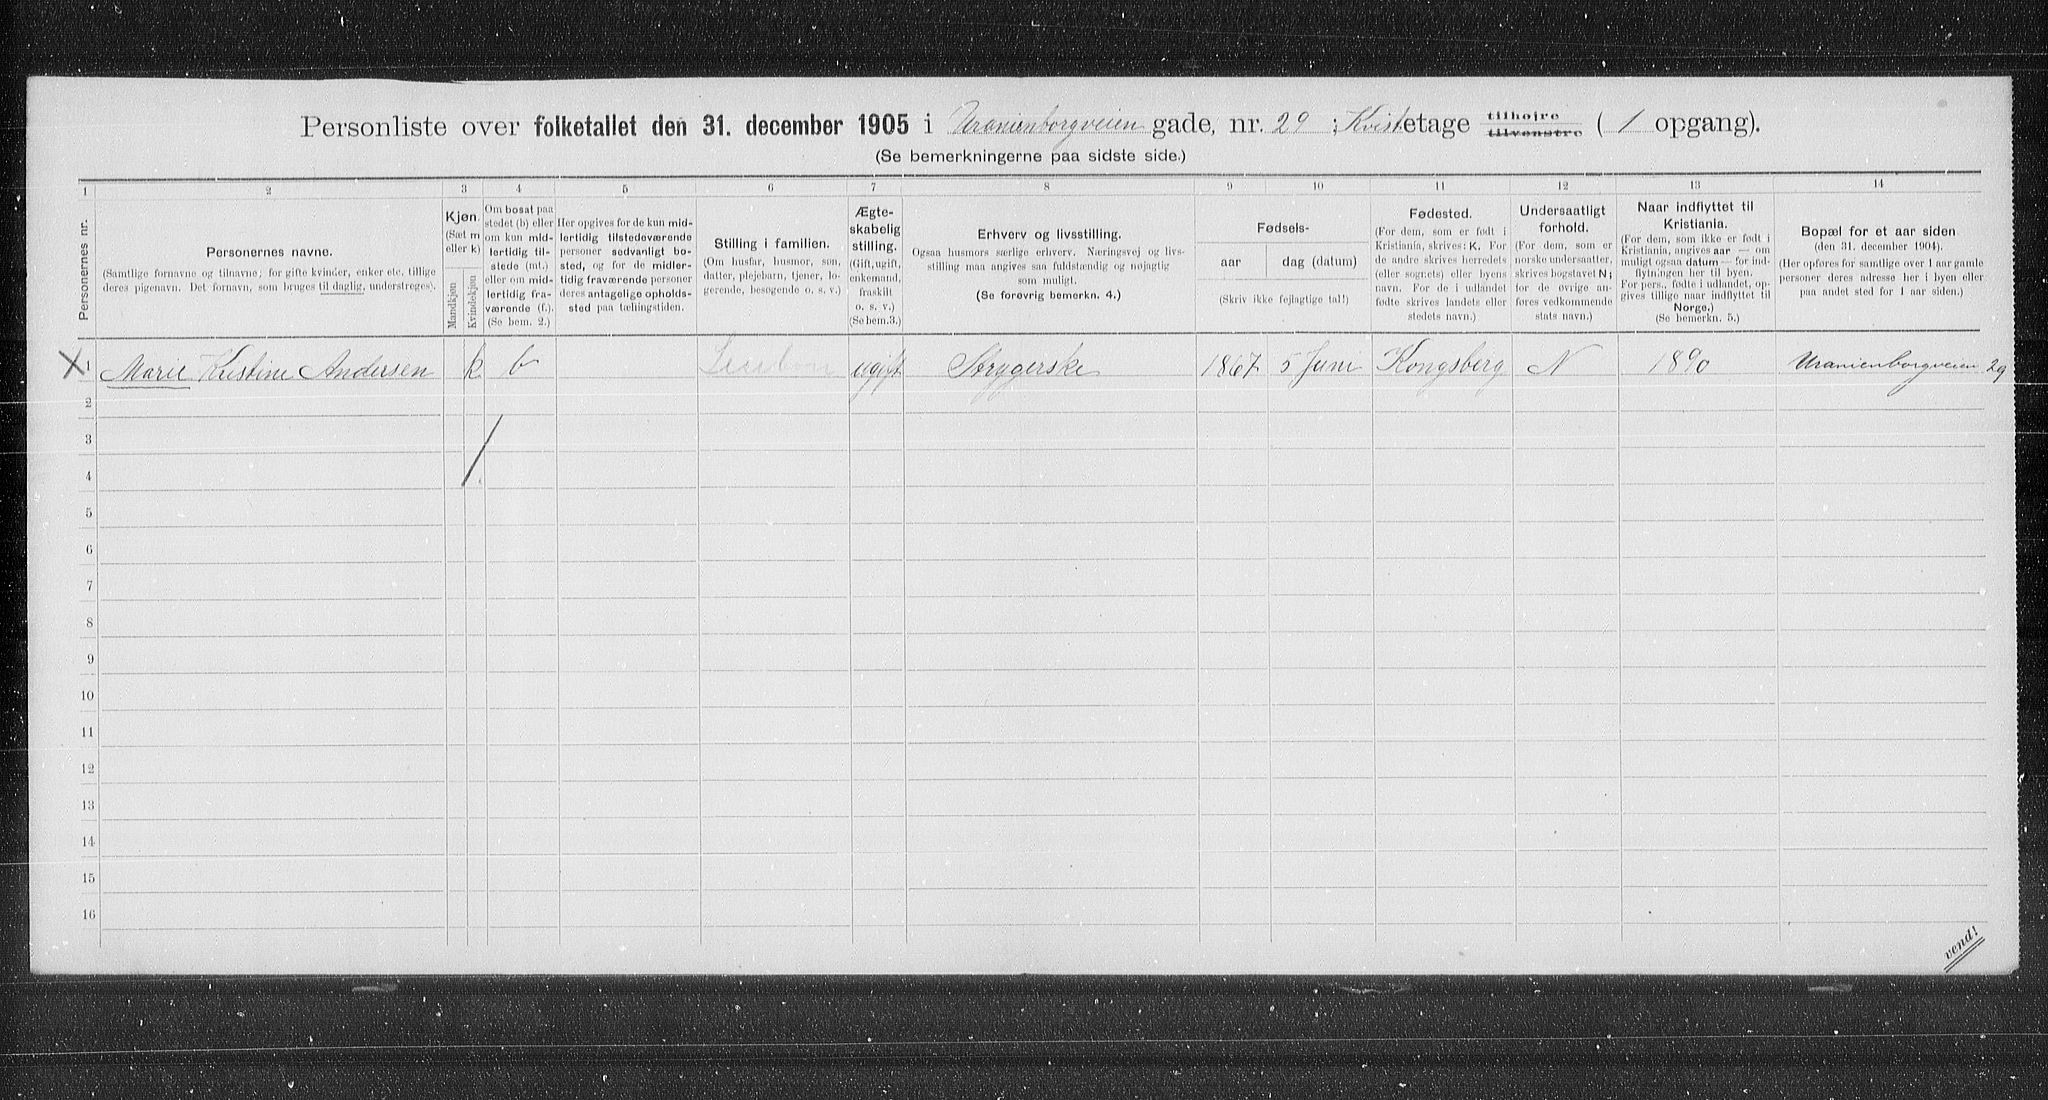 Personliste over folketallet den 31. december 1905 i Uranienborgveien gade, nr. 29 ; Kvist etage tilhøjre tilvenstre ( 1 opgang).
(Se bemerkningerne paa sidste side.)
1 2 3 4 5 6 7 8 9 10 11 12 13 14
Personernes nr.
Personernes navne.
(Samtlige fornavne og tilnavne; for gifte kvinder, enker etc. tillige
deres pigenavn. Det fornavn, som bruges til daglig, understreges).
Kjøn.
(Sæt m
eller k)
Mandkjøn
Kvindekjøn
Om bosat paa
stedet (b) eller
om kun mid-
lertidig til-
stede (mt.)
eller om mid-
lertidig fra-
værende (f.).
(Se bem. 2.)
Her opgives for de kun mid-
lertidig tilstedeværende
personer sedvanligt bo-
sted, og for de midler-
tidig fraværende personer
deres antagelige opholds-
sted paa tællingstiden.
Stilling i familien.
(Om husfar, husmor, søn,
datter, plejebarn, tjener, lo-
gerende, besøgende o. s. v.)
Ægte-
skabelig
stilling.
(Gift, ugift,
enkemand,
fraskilt
o. s. v.)
(Se bem. 3.)
Erhverv og livsstilling.
Ogsaa husmors særlige erhverv. Næringsvej og livs-
stilling maa angives saa fuldstændig og nøjagtig
som muligt.
(Se forøvrig bemerkn. 4.)
Fødsels-
aar
dag (datum)
(Skriv ikke fejlagtige tal!)
Fødested.
(For dem, som er født i
Kristiania, skrives: K. For
de andre skrives herredets
(eller sognets) eller byens
navn. For de i udlandet
fødte skrives landets eller
stedets navn.)
Undersaatligt
forhold.
(For dem, som er
norske undersaatter,
skrives bogstavet N;
for de øvrige an-
føres vedkommende
stats navn.)
Naar indflyttet til
Kristiania.
(For dem, som ikke er født i
Kristiania, angives aar — om
muligt ogsaa datum — for ind-
flytningen her til byen.
For pers., fødte i udlandet, op-
gives tillige naar indflyttet til
Norge.)
(Se bemerkn. 5.)
Bopæl for et aar siden
(den 31. december 1904).
(Her opføres for samtlige over 1 aar gamle
personer deres adresse her i byen eller
paa andet sted for 1 aar siden.)
X 1 Marie Kristine Andersen k b ugift Strygerske 1867 5 Juni Kongsberg N 1890 Uranienborgveien 29
2
3
4
5
6
7
8
9
10
11
12
13
14
15
16
vend!